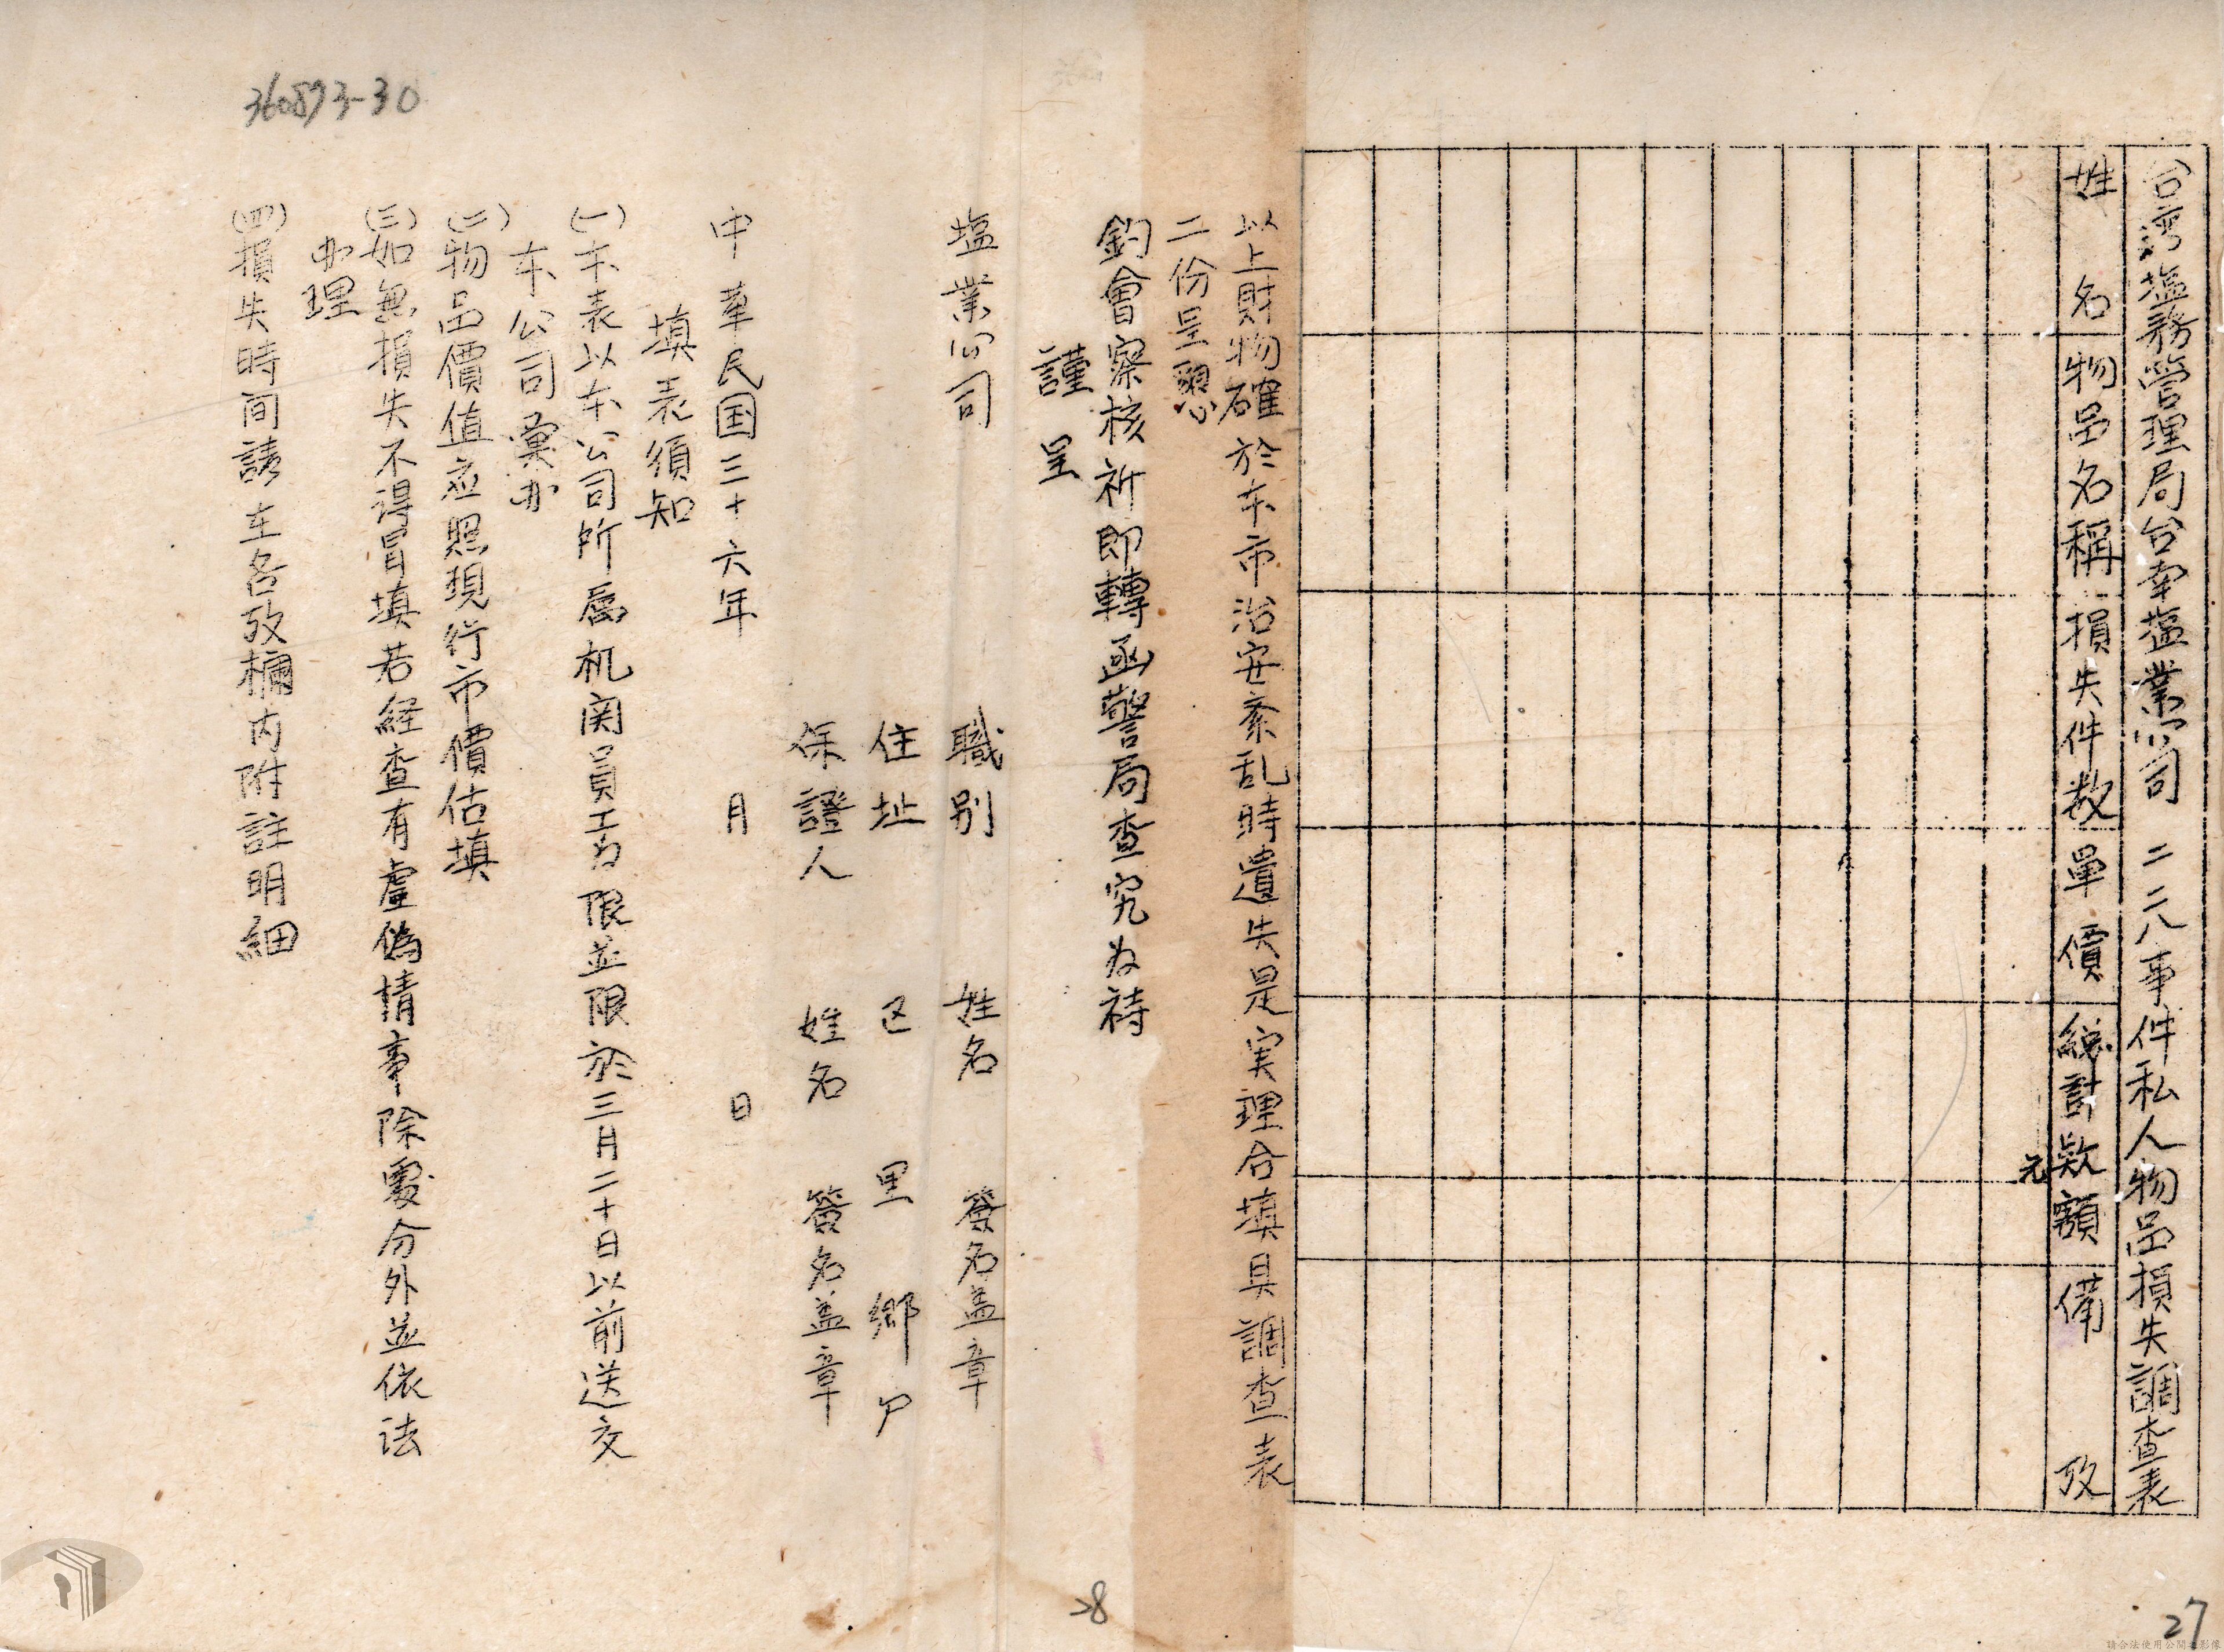 台湾塩務管理局台南塩業公司 二二八事件私人物品損失調查表
姓名
物品名稱
損失件数
單價
総計款額
備攷
元
以上財物確於本市治安紊乱時遺失是実理合填具調查表
二份呈懇
鈞會察核祈即轉函警局查究為祷
謹呈
塩業公司
職别 姓名 簽名盖章
住址 区 里 鄉 户
保證人 姓名 簽名盖章
中華民国三十六年 月 日
填表須知
(一)本表以本公司所属机関員工為限並限於三月二十日以前送交
本公司彙办
(二)物品價值应照現行市價估填
(三)如無損失不得冒填若経查有虛偽情事除處分外並依法
办理
(四)損失時间請在各攷欄内附註明細
360893-30
28
27
請合法使用公開之影像